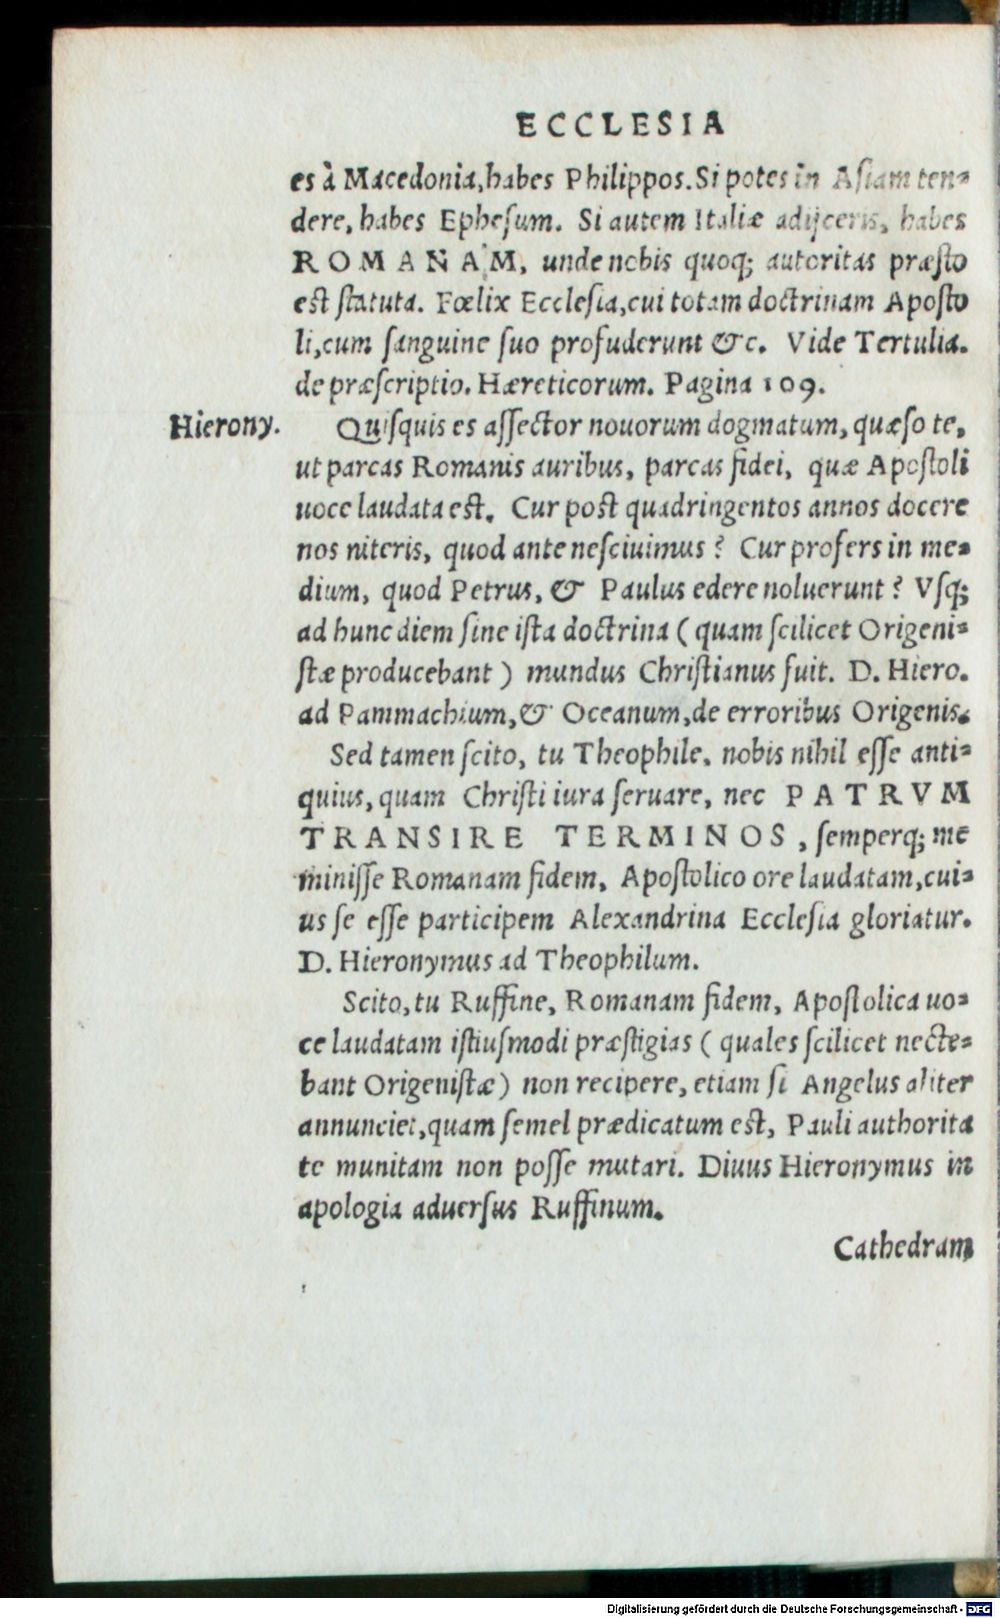 ECCLESIA
es à Macedonia, habes Philippos. Si potes in Asiam ten⸗
dere, habes Ephesum. Si autem Italiæ adijceris, habes
ROMANAM, unde nobis quoq; autoritas præsto
est statuta. Fœlix Ecclesia, cui totam doctrinam Aposto
li, cum sanguine suo profuderunt &c. Vide Tertulia.
de præscriptio. Hæreticorum. Pagina 109.
Hierony.
Quisquis es assector nouorum dogmatum, quæso te,
ut parcas Romanis auribus, parcas fidei, quæ Apostoli
uoce laudata est. Cur post quadringentos annos docere
nos niteris, quod ante nesciuimus? Cur profers in me⸗
dium, quod Petrus, & Paulus edere noluerunt? Vsq;
ad hunc diem sine ista doctrina (quam scilicet Origeni⸗
stæ producebant) mundus Christianus fuit. D. Hiero.
ad Pammachium, & Oceanum, de erroribus Origenis.
Sed tamen scito, tu Theophile, nobis nihil esse anti⸗
quius, quam Christi iura seruare, nec PATRVM
TRANSIRE TERMINOS, semperq; me
minisse Romanam fidem, Apostolico ore laudatam, cui⸗
us se esse participem Alexandrina Ecclesia gloriatur.
D. Hieronymus ad Theophilum.
Scito, tu Ruffine, Romanam fidem, Apostolica uo⸗
ce laudatam istiusmodi præstigias (quales scilicet necte⸗
bant Origenistæ) non recipere, etiam si Angelus aliter
annunciet, quam semel prædicatum est, Pauli authorita
te munitam non posse mutari. Diuus Hieronymus in
apologia aduersus Ruffinum.
Cathedram
Digitalisierung gefördert durch die Deutsche Forschungsgemeinschaft - DFG